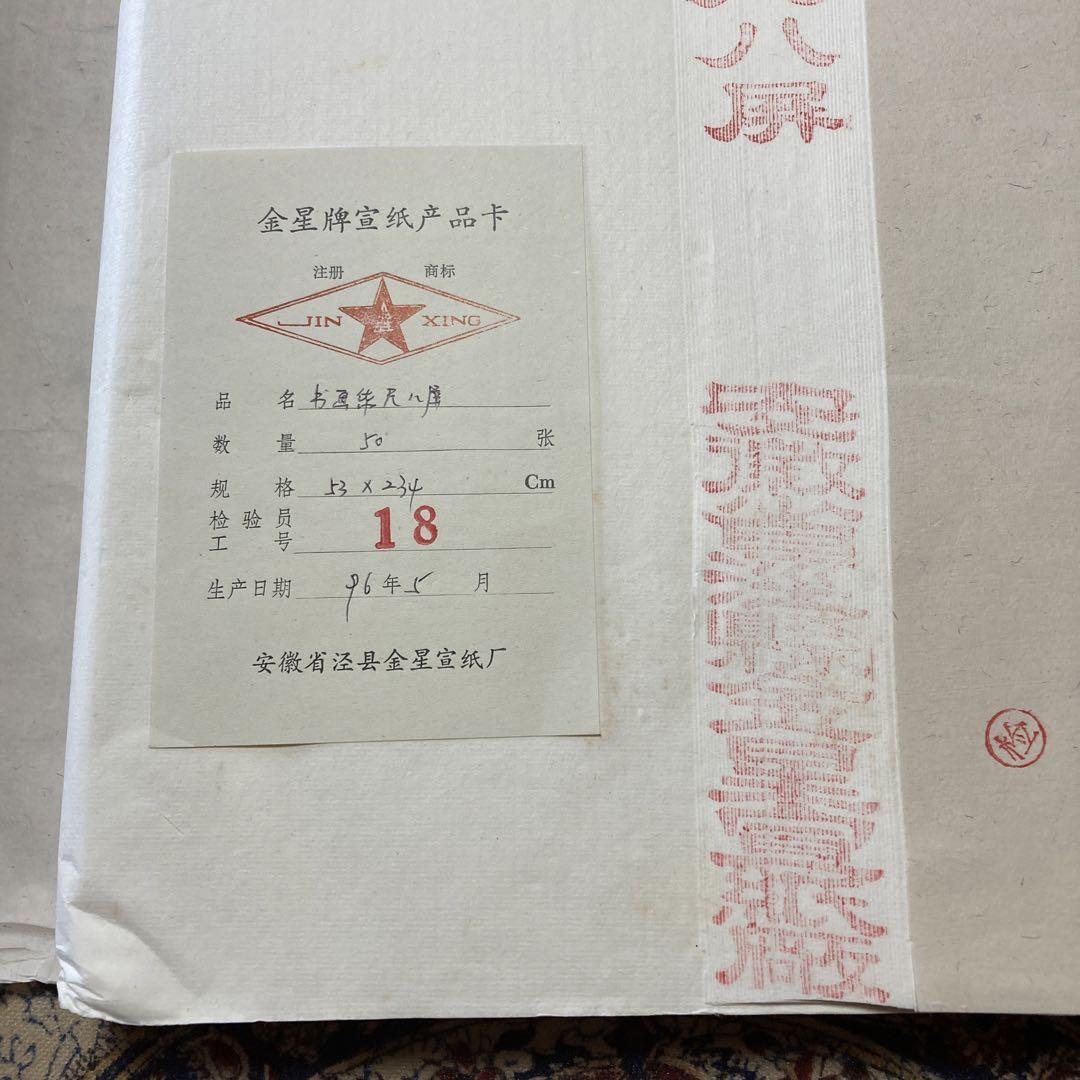 金星牌宣纸产品卡
注册 商标
JIN XING
品 名 书画纸尺八屏
数 量 50 张
规 格 53 x 234 Cm
检验员
工 号 18
生产日期 96年5 月
安徽省泾县金星宣纸厂
八屏
安徽省泾縣金星宣紙廠
检